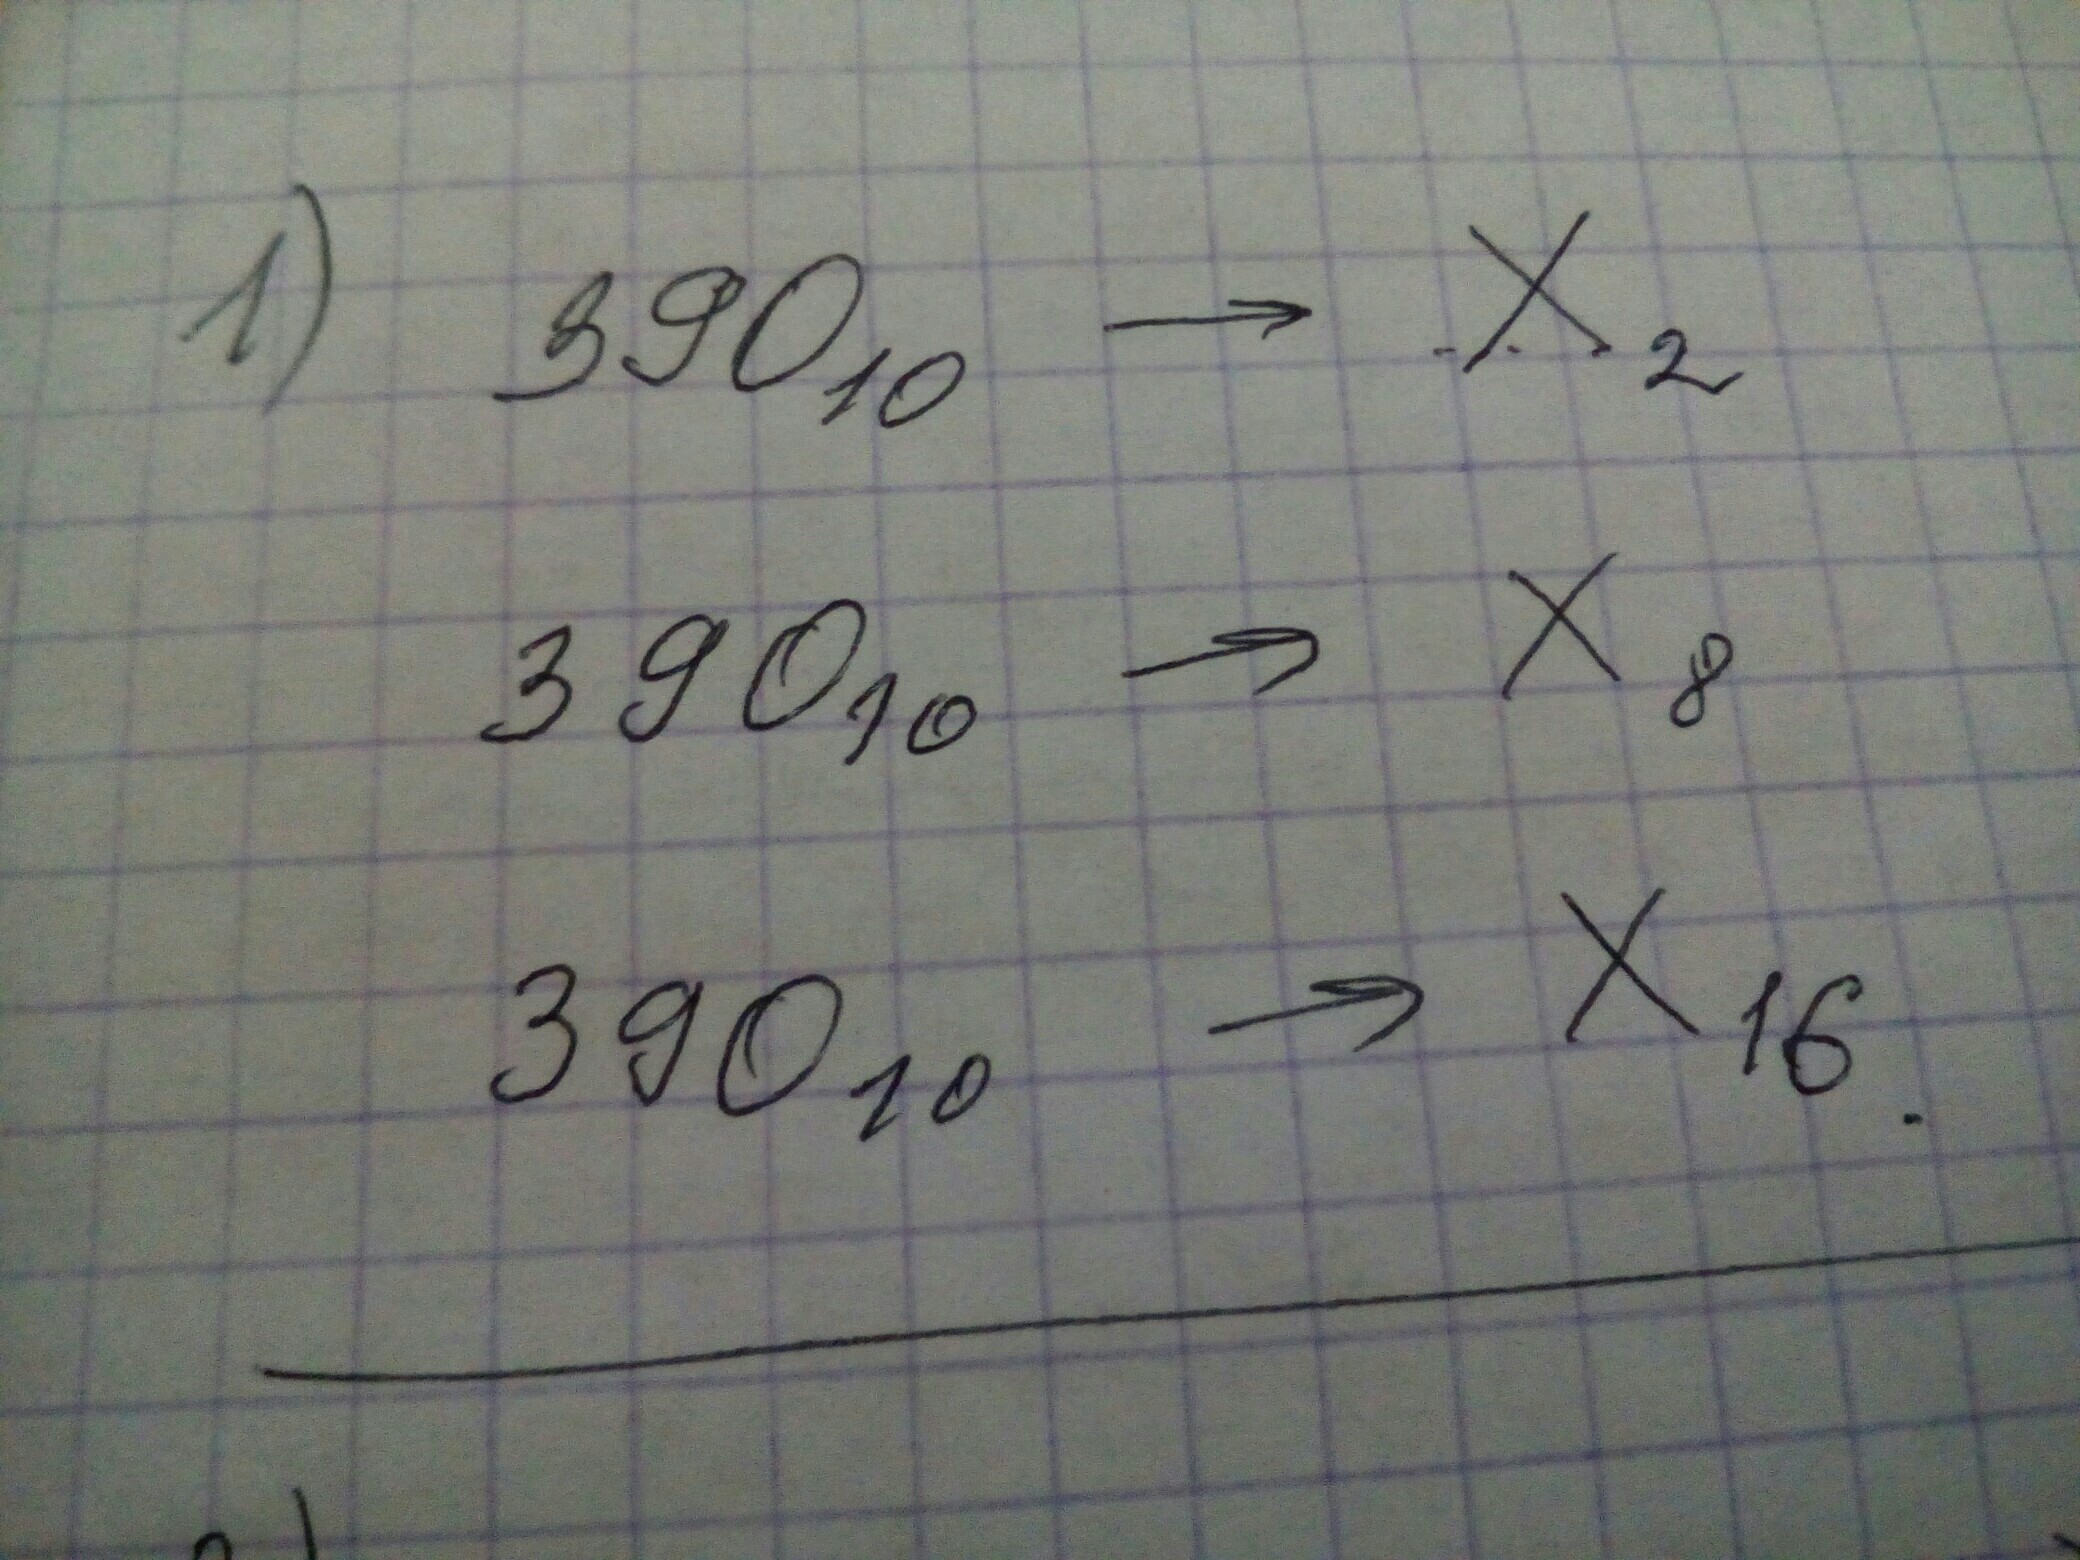 1) 390₁₀ → X₂
390₁₀ → X₈
390₁₀ → X₁₆.